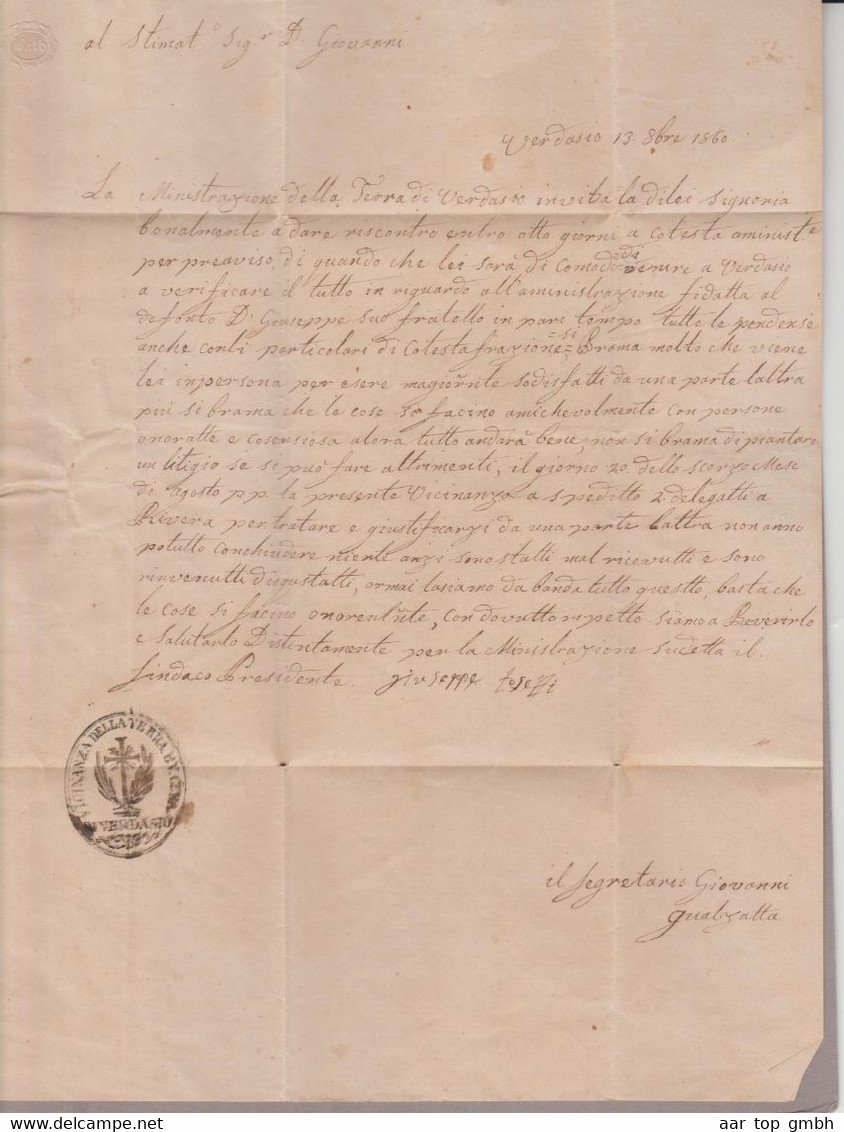 al Stimat.o Sig.r D. Giovanni
Verdasio 13. 8bre 1860.
La Ministrazione della Terra di Verdasio invita la dilei Signoria
bonalmente a dare riscontro entro otto giorni a cotesta aminist.e
per preaviso, di quando che lei sarà di Comodo di venire a Verdasio
a verificare il tutto in riguardo all'aministrazione fidatta al
defonto D. Giuseppe suo fratello in pari tempo tutte le pendense
anche conti particolari di Cotesta frazione, =si= Brama molto che viene
lei in persona per esere magiormte sodisfatti da una parte laltra
più si brama che le cose si facino amichevolmente con persone
onoratte e cosensiosa alora tutto andarà bene, non si brama di piantare
un litigio se si può fare altrimenti, il giorno 20. dello scorzo Mese
di agosto pp. la presente Vicinanza a speditto 2 delegatti a
Rivera per tratare e giustificarzi da una parte laltra non anno
potutto conchiudere niente anzi sono statti mal ricevutti e sono
rinvenutti disgustatti, ormai lasiamo da banda tutto questto, basta che
le cose si facino onorevolmte, con dovutto rispetto siamo a Reverirlo
e Salutarlo Distintamente per la Ministrazione sudetta il
Sindaco Presidente. giuseppe tosetti
VICINANZA DELLA TERRA
DI VERDASIO
il Segretario Giovanni
gualzatta
aar top gmbh